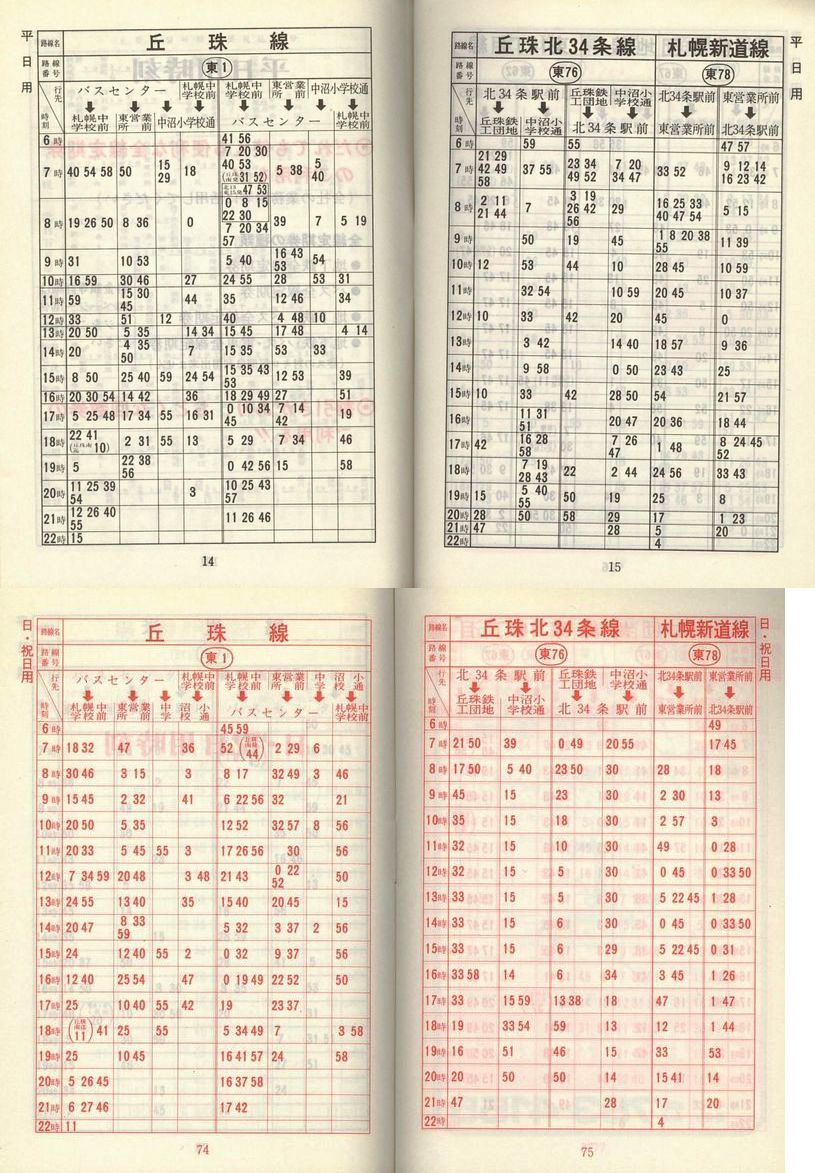 平日用
路線名 丘珠線
路線番号 東1
行先 時刻
バスセンター → 札幌中学校前
バスセンター → 東営業所前
バスセンター → 中沼小学校通
札幌中学校前 → 中沼小学校通
札幌中学校前 → バスセンター
東営業所前 → バスセンター
中沼小学校通 → バスセンター
中沼小学校通 → 札幌中学校前
6時 41 56
7時 40 54 58 50 15 29 18 7 20 30 40 53 31 52 47 53 5 38 5 40
8時 19 26 50 8 36 0 0 8 15 22 30 7 20 34 57 39 7 5 19
9時 31 10 53 5 40 16 43 53 54
10時 16 59 30 46 27 24 55 28 53 31
11時 59 15 30 45 44 35 12 46 34
12時 33 51 12 40 4 48 10
13時 20 50 5 35 14 34 15 45 17 48 4 14
14時 20 4 35 50 7 15 35 53 33
15時 8 50 25 40 59 24 54 15 35 43 53 12 53 39
16時 20 30 54 14 42 36 18 29 49 27 51
17時 5 25 48 17 34 55 16 31 0 10 34 45 7 14 42 19
18時 22 41 10 2 31 55 13 5 29 7 34 46
19時 5 22 38 56 0 42 56 15 58
20時 11 25 39 54 3 10 25 43 57
21時 12 26 40 55 11 26 46
22時 15
14
平日用
路線名 丘珠北34条線 札幌新道線
路線番号 東76 東78
行先 時刻
北34条駅前 → 丘珠鉄工団地
北34条駅前 → 中沼小学校通
丘珠鉄工団地 → 北34条駅前
中沼小学校通 → 北34条駅前
北34条駅前 → 東営業所前
東営業所前 → 北34条駅前
6時 59 55 47 57
7時 21 29 42 49 58 37 55 23 34 49 52 7 20 34 47 33 52 9 12 14 16 23 42
8時 2 11 21 44 7 3 19 26 42 56 29 16 25 33 40 47 54 5 15
9時 50 19 45 1 8 20 38 55 11 39
10時 12 53 44 10 28 45 10 59
11時 32 54 10 59 20 45 10 37
12時 10 33 42 20 45 0
13時 3 42 14 40 18 57 9 36
14時 9 58 0 50 23 43 25
15時 10 33 42 28 50 54 21 57
16時 11 31 51 20 47 20 36 18 44
17時 42 16 28 58 7 26 47 1 48 8 24 45 52
18時 7 19 28 43 22 2 44 24 56 33 43
19時 15 5 40 55 50 19 25 8
20時 28 50 58 29 17 1 23
21時 47 28 5 20
22時 4
15
日・祝日用
路線名 丘珠線
路線番号 東1
行先 時刻
バスセンター → 札幌中学校前
バスセンター → 東営業所前
バスセンター → 中沼小学校通
札幌中学校前 → 中沼小学校通
札幌中学校前 → バスセンター
東営業所前 → バスセンター
中沼小学校通 → バスセンター
中沼小学校通 → 札幌中学校前
6時 45 59
7時 18 32 47 36 52 44 2 29 6
8時 30 46 3 15 3 8 17 32 49 3 46
9時 15 45 2 32 41 6 22 56 32 21
10時 20 50 5 35 12 52 32 57 8 56
11時 20 33 5 45 55 3 17 26 56 30 56
12時 7 34 59 20 48 3 48 21 43 0 22 52 50
13時 24 55 13 40 35 15 40 20 45 15
14時 20 47 8 33 59 5 32 3 37 2 56
15時 24 12 40 55 2 0 32 9 37 56
16時 12 40 25 54 47 0 19 49 22 52 50
17時 25 10 40 55 42 19 23 37
18時 11 41 25 55 5 34 49 7 3 58
19時 25 10 45 16 41 57 24 58
20時 5 26 45 16 37 58
21時 6 27 46 17 42
22時 11
74
日・祝日用
路線名 丘珠北34条線 札幌新道線
路線番号 東76 東78
行先 時刻
北34条駅前 → 丘珠鉄工団地
北34条駅前 → 中沼小学校通
丘珠鉄工団地 → 北34条駅前
中沼小学校通 → 北34条駅前
北34条駅前 → 東営業所前
東営業所前 → 北34条駅前
6時 49
7時 21 50 39 0 49 20 55 17 45
8時 17 50 5 40 23 50 30 28 18
9時 45 15 23 30 2 30 13
10時 35 15 18 30 2 57 3
11時 32 15 10 30 49 0 28
12時 32 15 5 30 0 45 0 33 50
13時 33 15 5 30 5 22 45 1 28
14時 33 15 6 30 0 45 0 33 50
15時 33 15 6 29 5 22 45 0 31
16時 33 58 14 6 34 3 45 1 26
17時 33 15 59 13 38 18 47 1 47
18時 19 33 54 59 13 12 1 44
19時 16 51 46 15 33 53
20時 20 50 50 14 15 41 14
21時 47 28 17 20
22時 4
75